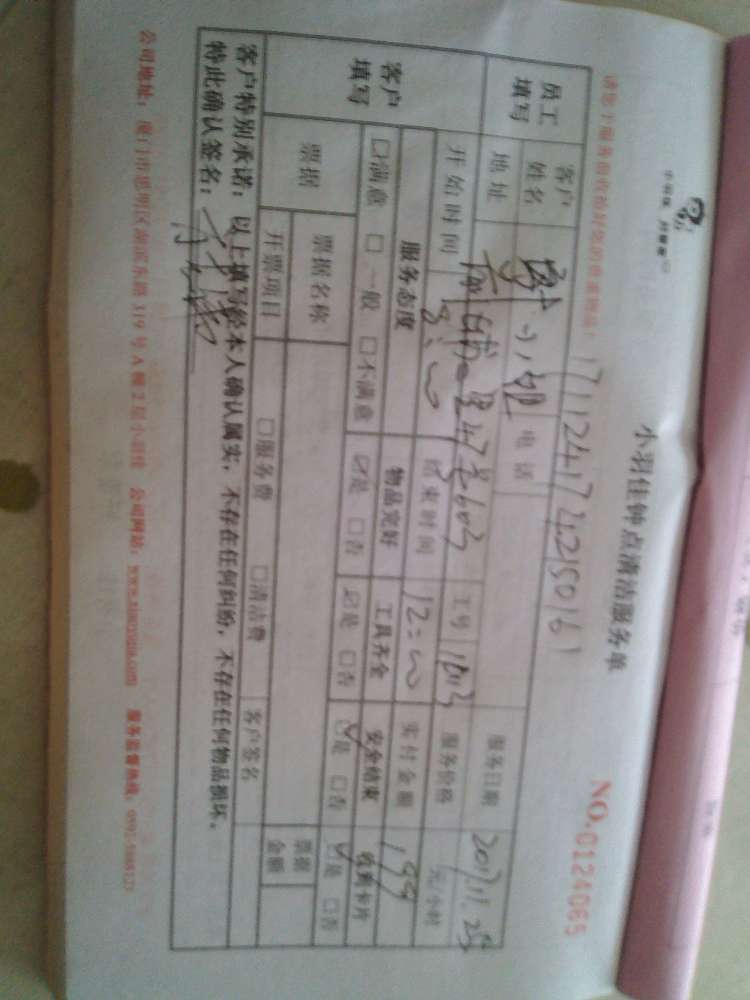 小羽佳钟点清洁服务单
NO.0124065
请您于服务前收拾好您的贵重物品!
员工填写 客户姓名 电话 服务日期 2017.11.25
地址 工号 服务价格 元/小时
开始时间 8:00 结束时间 12:00 实付金额 199
客户填写 服务态度 物品完好 工具齐全 安全结束 收到卡片
□满意 □一般 □不满意 ☑是 □否 ☑是 □否 ☑是 □否 ☑是 □否
票据 票据名称 票据金额
开票项目 □服务费 □清洁费 客户签名
客户特别承诺:以上填写经本人确认属实,不存在任何纠纷,不存在任何物品损坏。
特此确认签名:
公司地址:厦门市思明区湖滨东路319号A幢2层小羽佳 公司网站:www.xiaoyujia.com 服务监督热线: